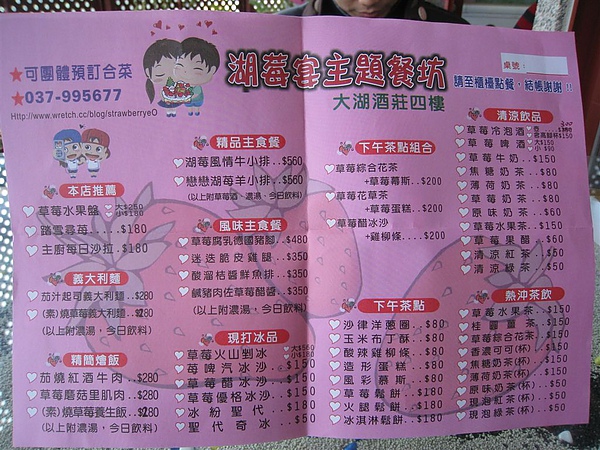 ★可團體預訂合菜
★037-995677
Http://www.wretch.cc/blog/strawberryeO
湖莓宴主題餐坊
大湖酒莊四樓
桌號：
請至櫃檯點餐，結帳謝謝!!
本店推薦
草莓水果盤 大$250 小$180
踏雪尋莓.....$180
主廚每日沙拉.$180
義大利麵
茄汁起司義大利麵..$280
(素)燒草莓義大利麵..$280
(以上附濃湯，今日飲料)
精簡燴飯
茄燒紅酒牛肉..$280
草莓蘑菇里肌肉..$280
(素)燒草莓養生飯..$280
(以上附濃湯，今日飲料)
精品主食餐
湖莓風情牛小排..$560
戀戀湖莓羊小排..$560
(以上附草莓酒，濃湯，今日飲料)
風味主食餐
草莓腐乳德國豬腳..$480
迷迭脆皮雞腿..$350
酸溜桔醬鮮魚排..$350
鹹豬肉佐草莓醋醬..$350
(以上附濃湯，今日飲料)
現打冰品
草莓火山剉冰 大$250
莓啤汽冰沙..$150
草莓醋冰沙..$150
草莓優格冰沙..$150
冰紛聖代..$80
聖代奇冰..$50
下午茶點組合
草莓綜合花茶
+草莓幕斯..$200
草莓花草茶
+草莓蛋糕..$200
草莓醋冰沙
+雞柳條....$200
下午茶點
沙律洋蔥圈..$80
玉米布丁酥..$80
酸辣雞柳條..$80
造形蛋糕..$80
風彩慕斯..$80
草莓鬆餅..$180
火腿鬆餅..$180
冰淇淋鬆餅..$180
清涼飲品
草莓冷泡酒
草莓啤酒 大$150 小$90
草莓牛奶..$150
焦糖奶茶..$80
薄荷奶茶..$80
草莓奶茶..$80
原味奶茶..$60
草莓水果茶..$150
草莓果醋..$60
清涼紅茶..$50
清涼綠茶..$50
熱沖茶飲
草莓水果茶..$150
桂圓薑茶..$150
草莓綜合花茶..$150
香濃可可(杯)..$150
焦糖奶茶(杯)..$150
薄荷奶茶(杯)..$150
原味奶茶(杯)..$50
現泡紅茶(杯)..$50
現泡綠茶(杯)..$50